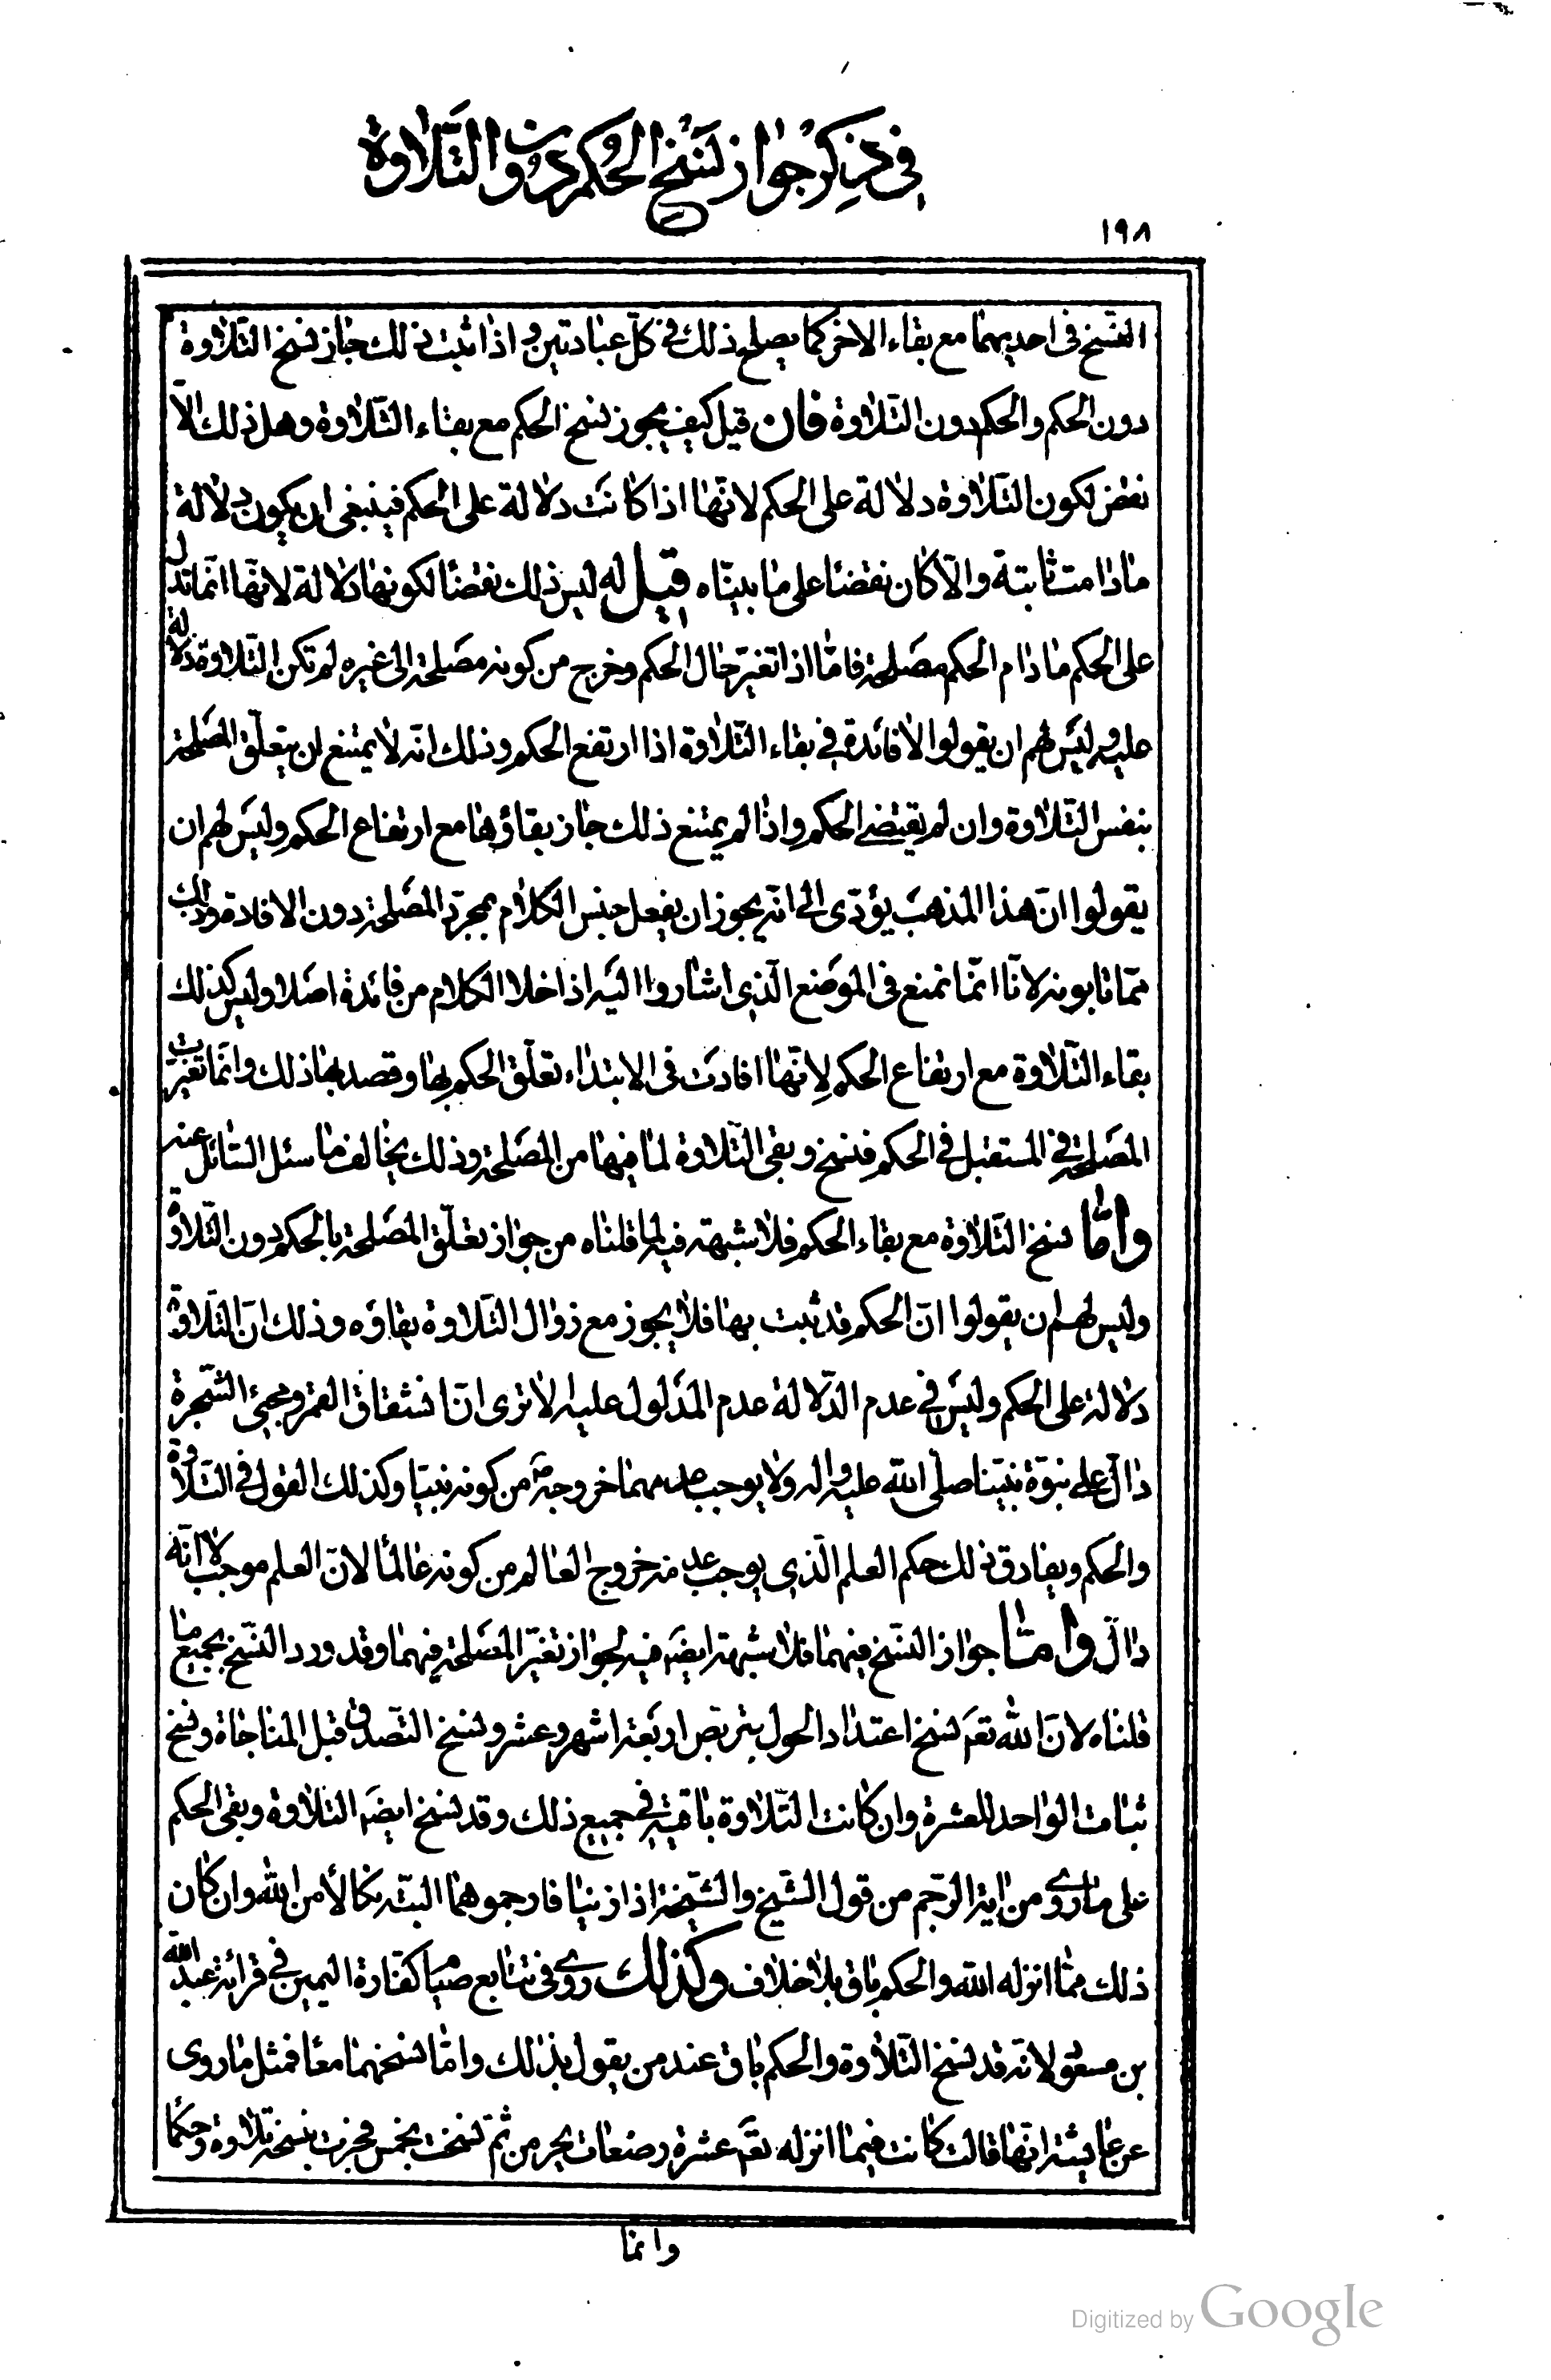 في ذكر جواز نسخ الحكم دون التلاوة
١٩٨
النسخ في احديهما مع بقاء الاخر كما يصلح ذلك في كلّ عبادتين و اذا ثبت ذلك جاز نسخ التّلاوة
دون الحكم والحكم دون التّلاوة فان قيل كيف يجوز نسخ الحكم مع بقاء التّلاوة وهل ذلك الاّ
نقض لكون التّلاوة دلالة على الحكم لانّها اذا كانت دلالة على الحكم فينبغى ان يكون دلالة
ما دامت ثابتة والّا كان نقضا على ما بينّاه قيل له ليس ذلك نقضًا لكونها دلالة لانّها انّما تدل
على الحكم ما دام الحكم مصلحة فامّا اذا تغيّر حال الحكم وخرج من كونه مصلحة الى غيره لم تكن التّلاوة دلالة
عليه وليس لهم ان يقولوا لا فائدة في بقاء التّلاوة اذا ارتفع الحكم وذلك انّه لا يمتنع ان يتعلّق المصلحة
بنفس التّلاوة وان لم يقتضي الحكم واذا لم يمتنع ذلك جاز بقاؤها مع ارتفاع الحكم وليس لهم ان
يقولوا انّ هذا المذهب يؤدّى الى انّه يجوز ان يفعل جنس الكلام بمجرّد المصلحة دون الافادة وذلك
ممّا تابونه لانّا انّما نمنع في الموضع الّذي اشاروا اليه اذا خلا الكلام من فائدة اصلا وليس كذلك
بقاء التّلاوة مع ارتفاع الحكم لانّها افادت في الابتداء تعلّق الحكم بها وقصد بها ذلك وانّما تغيرت
المصلحة في المستقبل في الحكم فنسخ وبقى التّلاوة لما فيها من المصلحة وذلك يخالف ما سئل السّائل عنه
وامّا نسخ التّلاوة مع بقاء الحكم فلا شبهة فيه لما قلناه من جواز تعلّق المصلحة بالحكم دون التّلاوة
وليس لهم ان يقولوا انّ الحكم قد ثبت بها فلا يجوز مع زوال التّلاوة بقاؤه وذلك انّ التّلاوة
دلالة على الحكم وليس في عدم الدّلالة عدم المدلول عليه الا ترى انّ انشقاق القمر ومجيئ الشّجرة
دالّ على نبوّة نبيّنا صلّى اللّه عليه واله ولا يوجب عدمهما خروجه ص من كونه نبيّا وكذلك القول في التّلاوة
والحكم ويفارق ذلك حكم العلم الّذي يوجب عدمه خروج العالم من كونه عالمًا لانّ العلم موجب لا انّه
دالّ وامّا جواز النّسخ فيهما فلا شبهة ايضًا فيه لجواز تغيّر المصلحة فيهما وقد ورد النّسخ بجميع ما
قلناه لانّ الله تعم نسخ اعتداد الحول بتربّص اربعة اشهر وعشر ونسخ التّصدق قبل المناجاة ونسخ
ثبات الواحد للعشرة وان كانت التّلاوة باقية في جميع ذلك وقد نسخ ايضًا التلاوة وبقى الحكم
على ما روي من اية الرّجم من قول الشّيخ والشّيخة اذا زنيا فارجموهما البتّه نكالًا من الله وان كان
ذلك ممّا انزله اللّه والحكم باق بلا خلاف وكذلك روي في تتابع صيام كفّارة اليمين في قرائة عبد الله
بن مسعود لانّه قد نسخ التّلاوة والحكم باق عند من يقول بذلك وامّا نسخهما معًا فمثل ما روى
عن عايشة انّها قالت كانت فيما انزله تعم عشرة رضعات يحرمن ثمّ نسخت بخمس فجرت بنسخه تلاوة وحكمًا
وانما
Digitized by Google